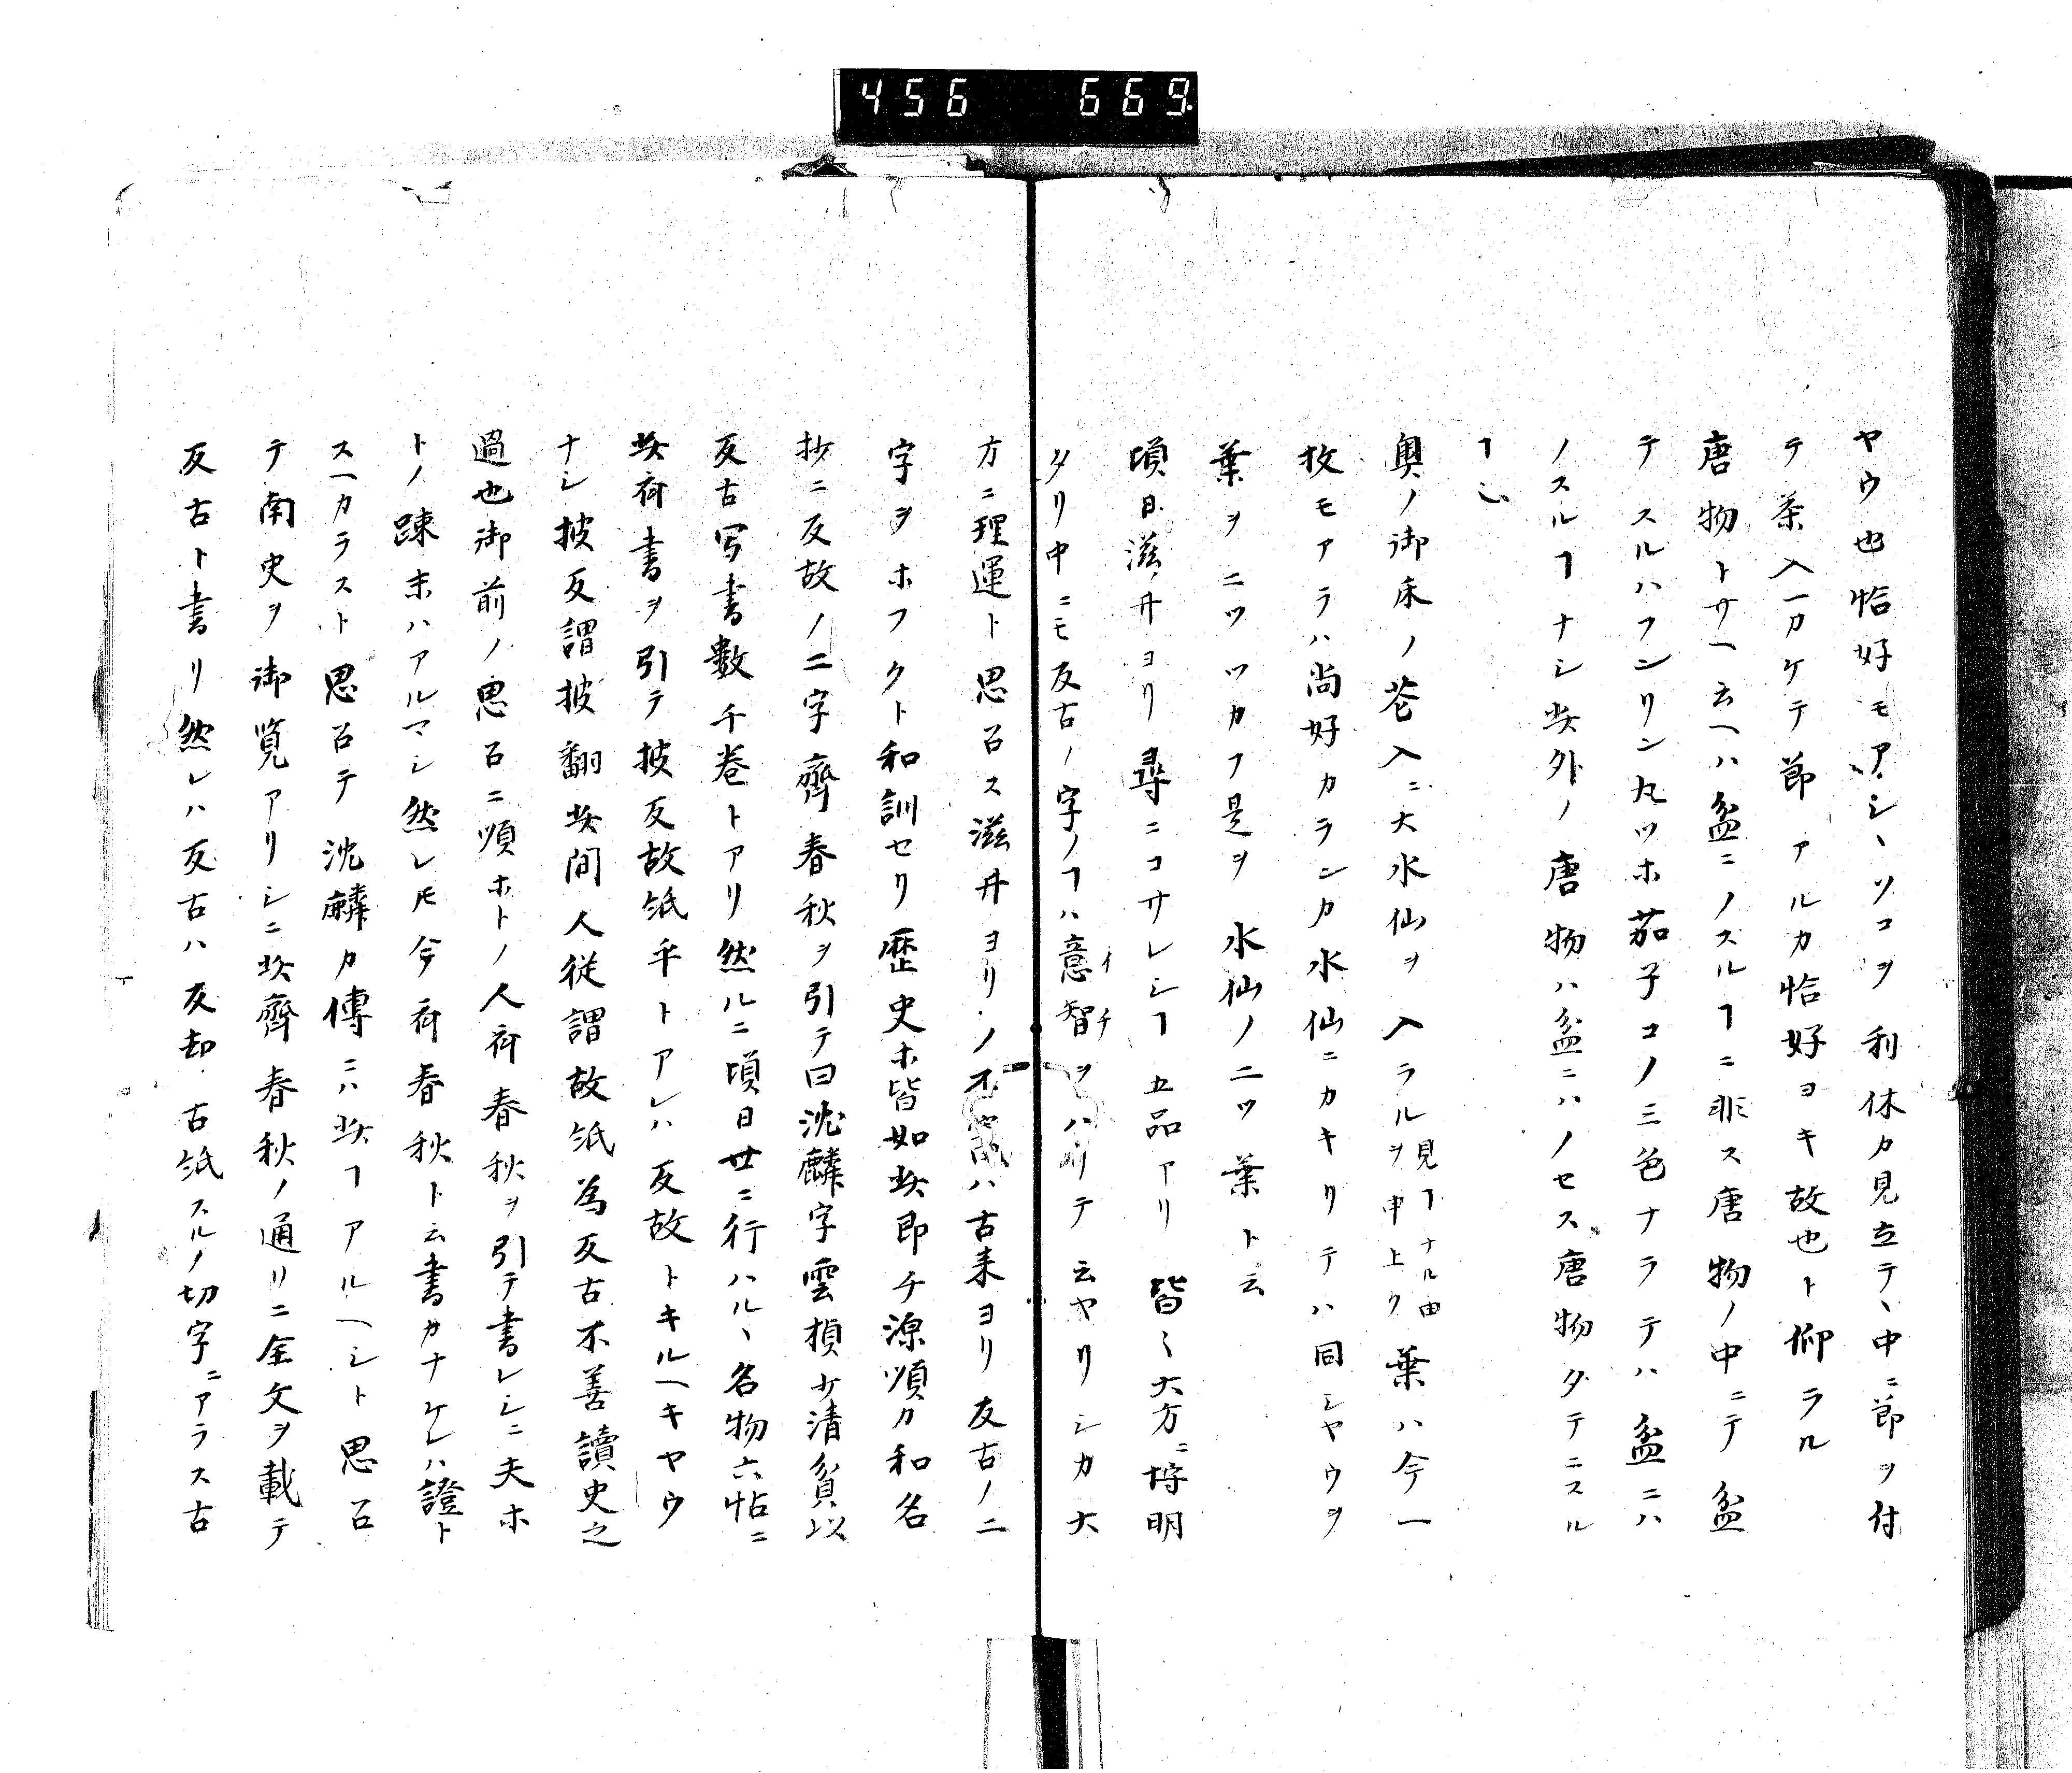 456 669
ヤウ也恰好モアシヽソコヲ利休カ見立テヽ中ニ節ヲ付
テ茶入一カケテ節アルカ恰好ヨキ故也ト仰ラル
唐物トサヘ云ヘハ盆ニノスルヿニ非ス唐物ノ中ニテ盆
テスルハフンリン丸ツホ茄子コノ三色ナラテハ盆ニハ
ノスルヿナシ此外ノ唐物ハ盆ニハノセス唐物タテニスル
ヿ也
奥ノ御床ノ花入ニ大水仙ヲ入ラル見ヿナル由ヲ申上ク葉ハ今一
枚モアラハ尚好カランカ水仙ニカキリテハ同シヤウヲ
葉ヲ二ツツカフ是ヲ水仙ノ二ツ葉ト云
頃日滋井ヨリ尋ニコサレシヿ五品アリ皆〻大方ニ埒明
タリ中ニモ反古ノ字ノヿハ意智イチヲハリテ云ヤリシカ大
方ニ理運ト思召ス滋井ヨリノ不審ハ古来ヨリ反古ノ二
字ヲホフクト和訓セリ歴史ホ皆如此即チ源順カ和名
抄ニ反故ノ二字齊春秋ヲ引テ曰沈麟字雲楨少清貧以
反古写書數千巻トアリ然ルニ頃日世ニ行ハルヽ名物六帖ニ
此斉書ヲ引テ披反故紙平トアレハ反故トキルヘキヤウ
ナシ披反謂披翻此間人従謂故紙為反古不善讀史之
過也御前ノ思召ニ順ホトノ人斉春秋ヲ引テ書レシニ夫ホ
トノ踈末ハアルマシ然レ𪜈今斉春秋ト云書カナケレハ證ト
スヘカラスト思召テ沈麟カ傳ニハ此ヿアルヘシト思召
テ南史ヲ御覧アリシニ此齊春秋ノ通リニ全文ヲ載テ
反古ト書リ然レハ反古ハ反却古紙スルノ切字ニアラス古